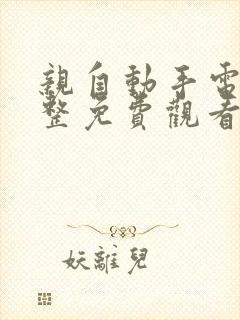 親自動手電
整免費觀看
妖離兒